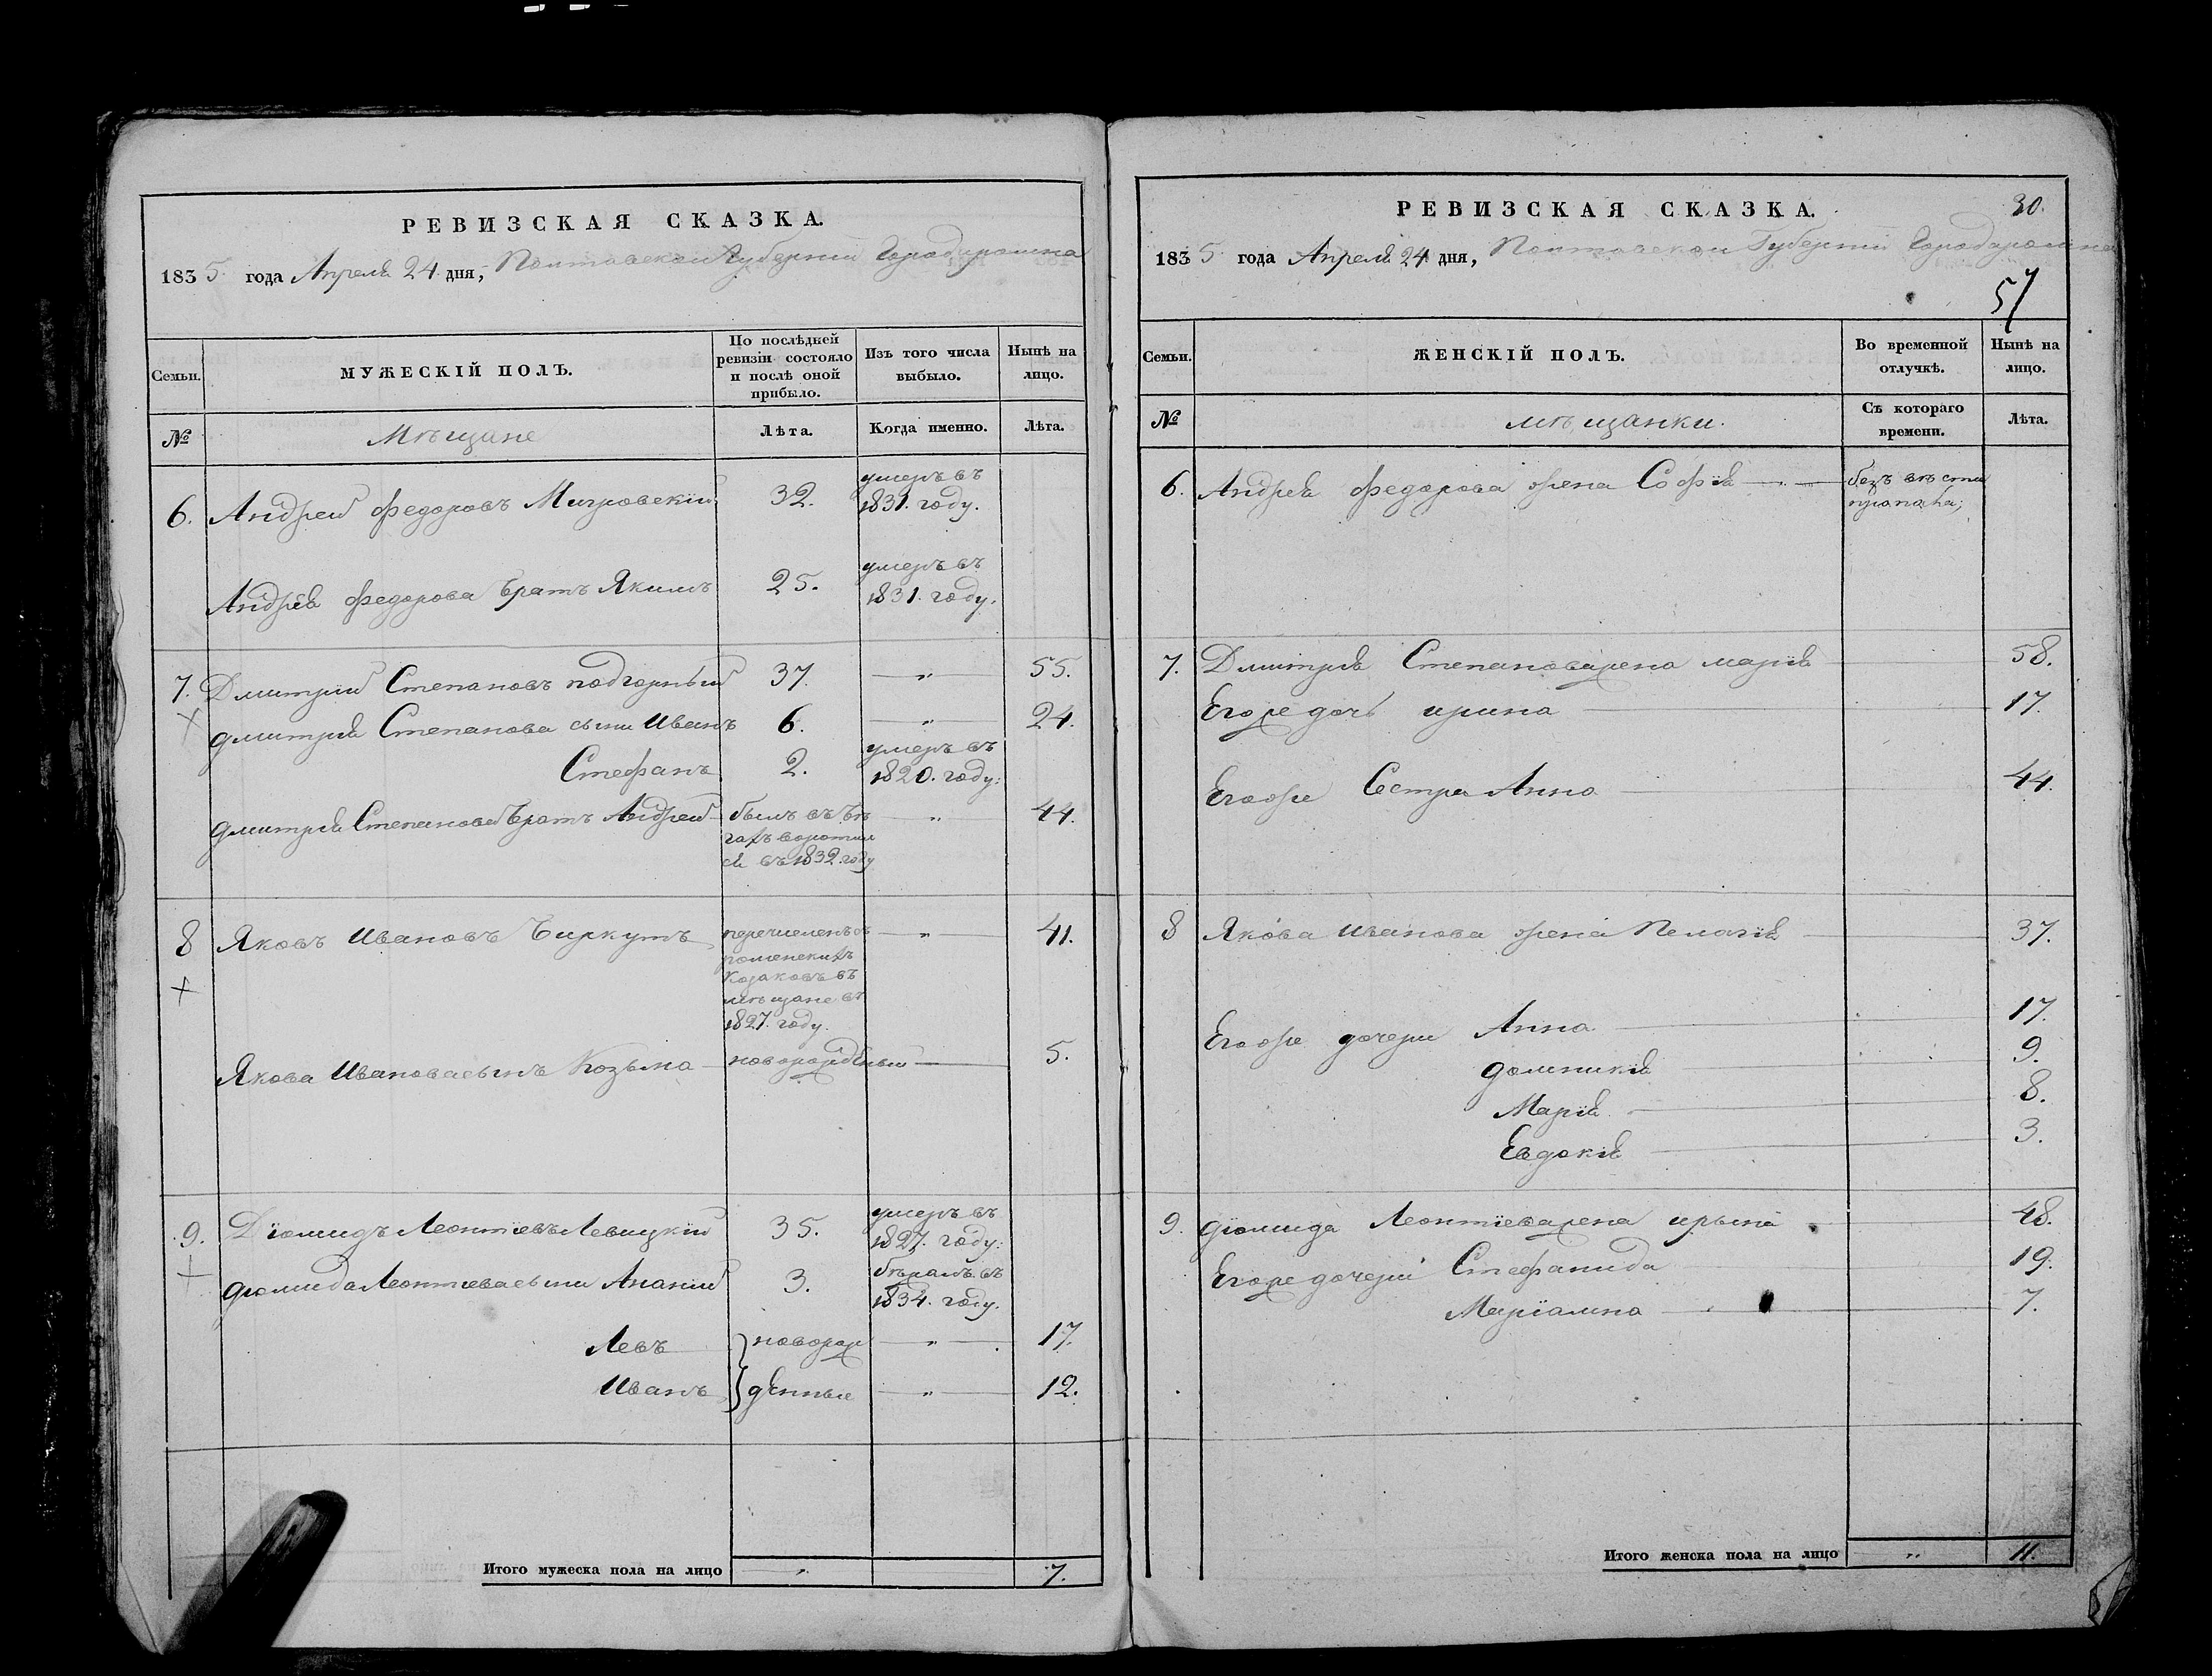 РЕВИЗСКАЯ СКАЗКА.
1835 года Апреля 24 дня, Полтавской Губернии Города ромна
Семьи.
МУЖЕСКІЙ ПОЛЪ.
По послѣдней ревизіи состояло и послѣ оной прибыло.
Изъ того числа выбыло.
Нынѣ на лицо.
№
Мѣщане
Лѣта.
Когда именно.
Лѣта.
6. Андрей Федоровъ 32. умеръ въ
1831. году.
Андрея Федорова братъ Якимъ 25. умеръ въ
1831. году.
7. Дмитрий Степановъ подгорный 37. — " — 55.
дмитрия Степанова сыни Иванъ 6. — " — 24.
Стефанъ 2. умеръ въ
1820. году:
дмитрия Степанова братъ Андрей былъ въ бѣ — " — 44.
гахъ воротил
ся въ 1832. году
8 Яковъ Ивановъ Чиркутъ перечисленъ съ — " — 41.
роменскихъ
Козаковъ въ
мѣщане въ
1827. году.
Якова Иванова сынъ Козьма новорожденый 5.
9. Дїомидъ Леонтїевъ Левицкїй 35. умеръ въ
1827. году:
дїомида Леонтїева сыни Ананїй 3. бѣжалъ въ
1834. году.
Левъ } новорож — " — 17.
Иванъ } денные — " — 12.
Итого мужеска пола на лицо " 7.
РЕВИЗСКАЯ СКАЗКА. 30.
1835 года Апреля 24 дня, Полтавской Губернии Города ромна
57
Семьи.
ЖЕНСКІЙ ПОЛЪ.
Во временной отлучкѣ.
Нынѣ на лицо.
№
мѣщанки.
Съ котораго времени.
Лѣта.
6. Андрея Федорова жена Софїя безъ вѣсти
пропала;
7. Дмитрия Степанова жена марїя 58.
Его же дочь ирина 17.
Его же Сестра Анна 44.
8 Якова Иванова жена Пелагїя 37.
Его же дочери Анна 17.
домникїя 9.
Марїя 8.
Евдокїя 3.
9. дїомида Леонтїева жена ирына 48.
Его же дочери Стефанида 19.
Марїанна 7.
Итого женска пола на лицо " 11.